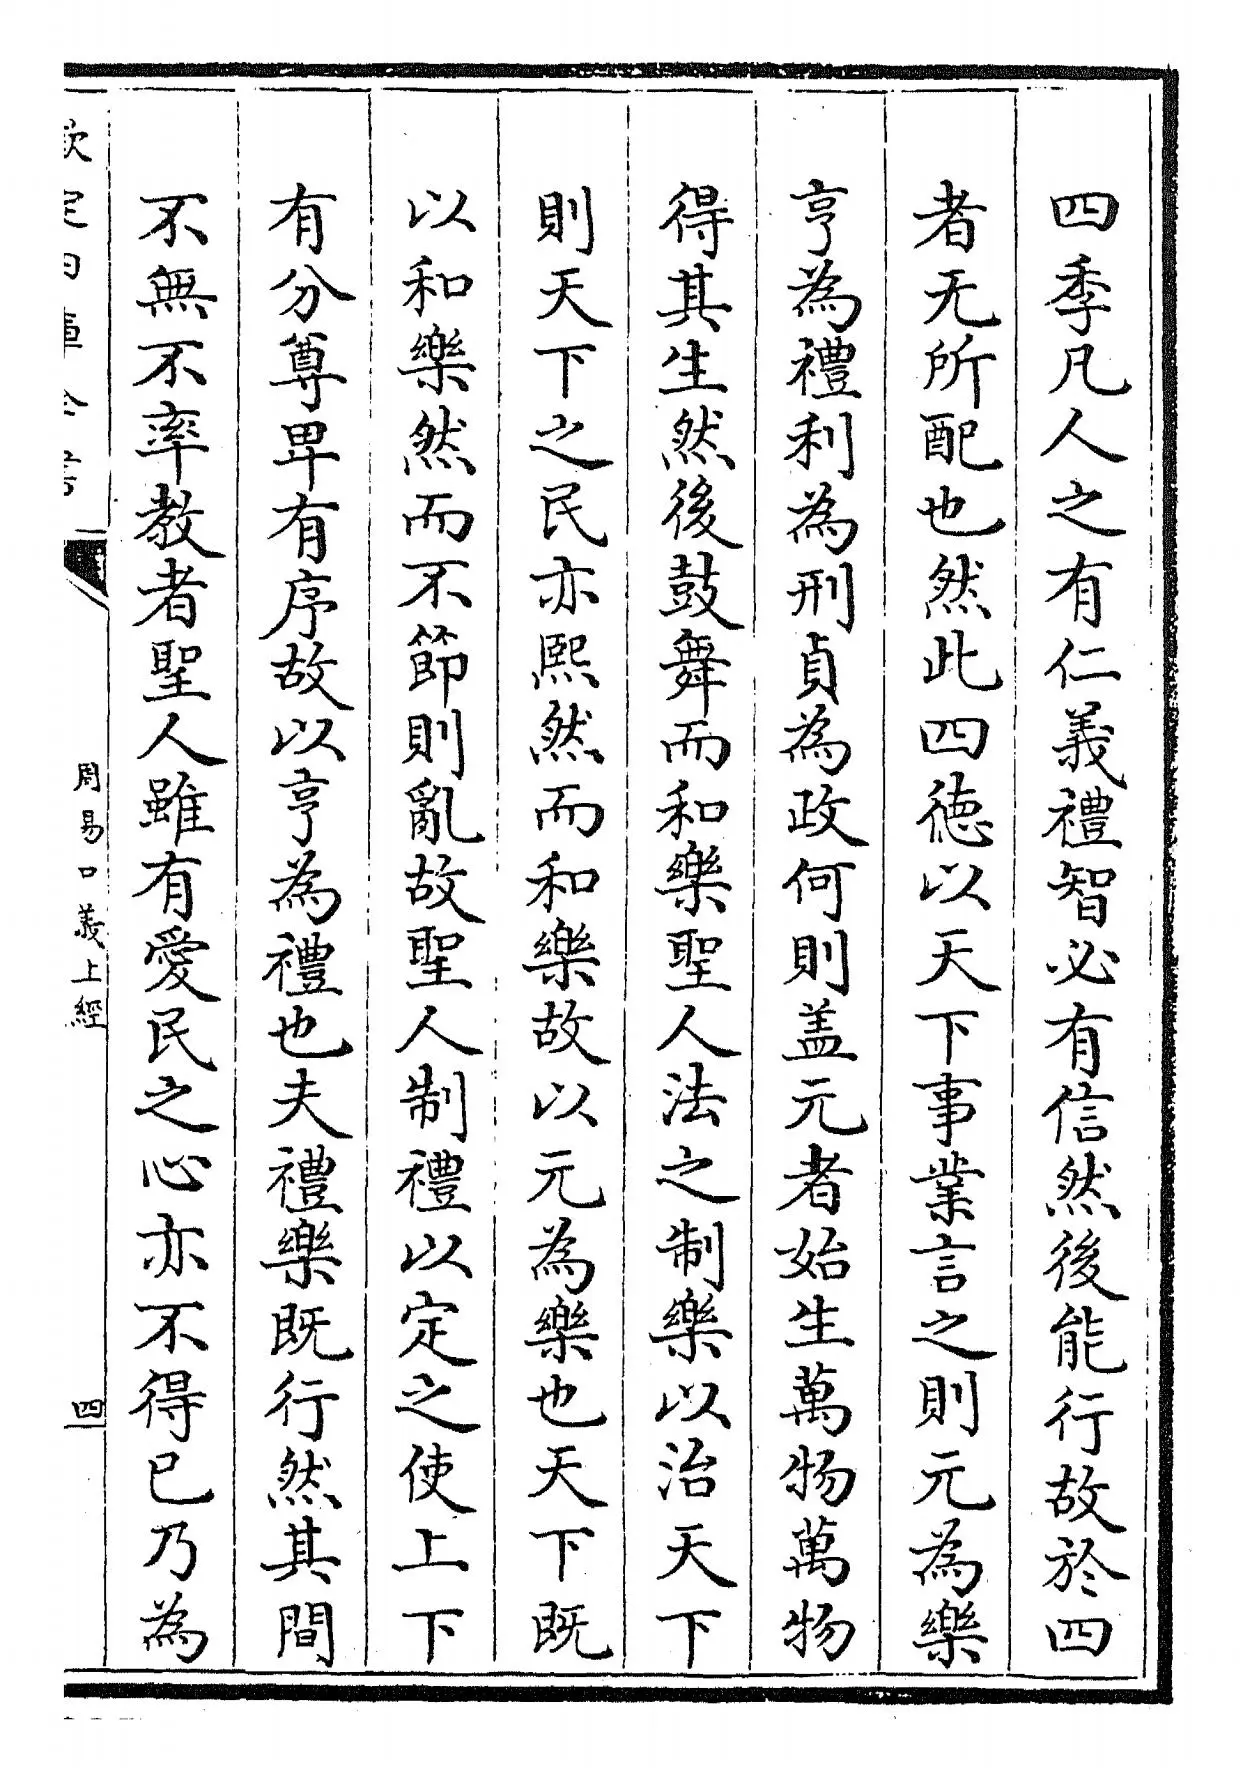 四季凡人之有仁義禮智必有信然後能行故於四
者无所配也然此四德以天下事業言之則元為樂
亨為禮利為刑貞為政何則盖元者始生萬物萬物
得其生然後鼓舞而和樂聖人法之制樂以治天下
則天下之民亦熙然而和樂故以元為樂也天下既
以和樂然而不節則亂故聖人制禮以定之使上下
有分尊卑有序故以亨為禮也夫禮樂既行然其間
不無不率教者聖人雖有愛民之心亦不得已乃為
欽定四庫全書
周易口義上經
四